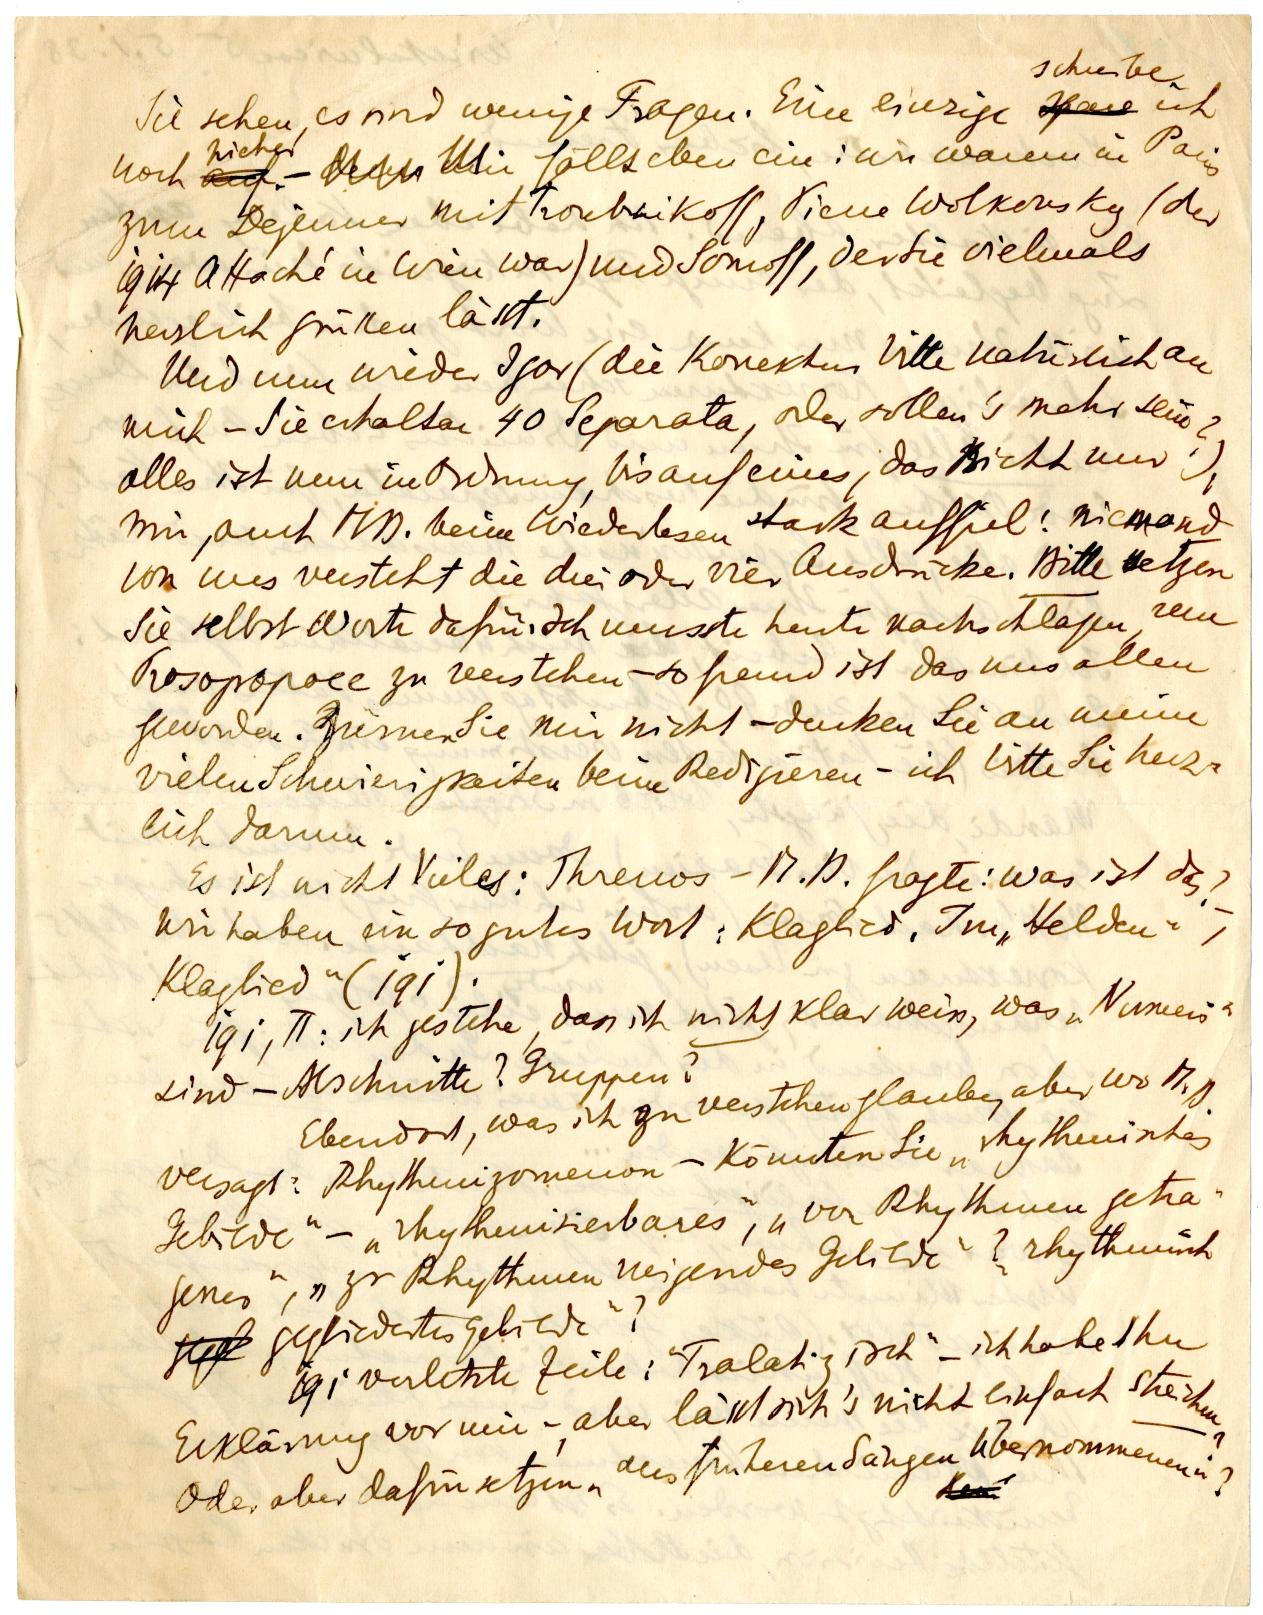 schreibe
Sie sehen, es sind wenige Fragen. Eine einzige ich
noch hieher – Mir fällt eben ein: wir waren in Paris
zum Dejeuner mit Troubnikoff, Pierre Wolkonsky (der
1914 Attaché in Wien war) und Somoff, der Sie vielmals
herzlich grüßen lässt.
Und nun wieder Igor (die Korrektur bitte natürlich an
mich – Sie erhalten 40 Separata, oder sollen's mehr sein?)
alles ist nun in Ordnung, bis auf eines, das nicht nur
mir, auch M.D. beim Wiederlesen stark auffiel: niemand
von uns versteht die drei oder vier Ausdrücke. Bitte setzen
Sie selbst Worte dafür. Ich musste heute nachschlagen, um
Prosopopoee zu verstehen – so fremd ist das uns allen
geworden. Zürnen Sie mir nicht – denken Sie an meine
vielen Schwierigkeiten beim Redigieren – ich bitte Sie herz-
lich darum.
Es ist nicht Vieles: Threnos – M.D. fragte: was ist das?
wir haben ein so gutes Wort: Klaglied. Im „Helden-
Klaglied" (191).
191, II: ich gestehe, dass ich nicht klar weiss, was „Numeri"
sind – Abschnitte? Gruppen?
Ebendort, was ich zu verstehen glaube, aber wo M.D.
versagt: Rhythmizomenon – Könnten Sie „rhythmisches
Gebilde" – „rhythmisierbares", „von Rhythmen getra-
genes", „zu Rhythmen neigendes Gebilde"? „rhythmisch
gegliedertes Gebilde"?
191 vorletzte Zeile: „Tralatizisch" – ich habe Ihre
Erklärung vor mir –, aber lässt sich's nicht einfach streichen?
Oder aber dafür setzen „aus früheren Sängen übernommenen"?